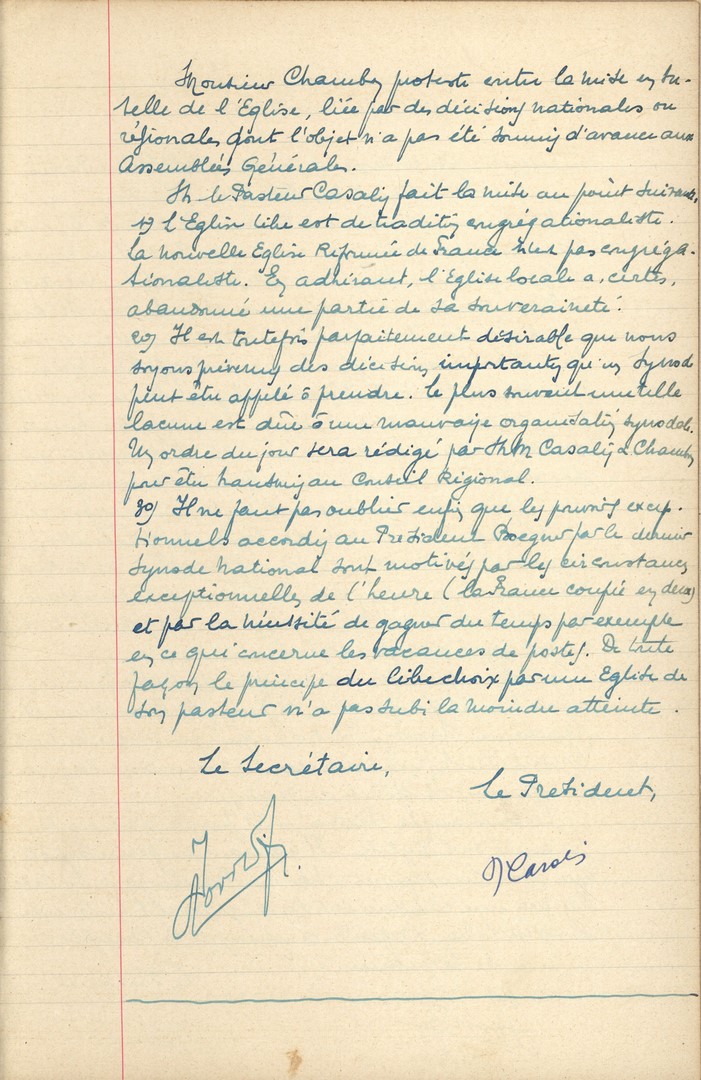 Monsieur Chambon proteste contre la mise en tu-
telle de l'Eglise, liée par des décisions nationales ou
régionales dont l'objet n'a pas été soumis d'avance aux
Assemblées Générales.
M le Pasteur Casalis fait la mise au point suivante,
1°) l'Eglise libre est de tradition congrégationaliste.
La nouvelle Eglise Réformée de France n'est pas congréga-
tionaliste. En adhérant, l'Eglise locale a, certes,
abandonné une partie de sa souveraineté.
2°) Il est toutefois parfaitement désirable que nous
soyons prévenus des décisions importantes qu'un Synode
peut être appelé à prendre. Le plus souvent une telle
lacune est dûe à une mauvaise organisation synodale.
Un ordre du jour sera rédigé par MM Casalis & Chambon
pour être transmis au Conseil Régional.
3°) Il ne faut pas oublier enfin que les pouvoirs excep-
tionnels accordés au Président Boegner par le dernier
Synode national sont motivés par les circonstances
exceptionnelles de l'heure (la France coupée en deux)
et par la nécessité de gagner du temps par exemple
en ce qui concerne les vacances de postes. De toute
façon le principe du libre choix par une Eglise de
son pasteur n'a pas subi la moindre atteinte.
Le Secrétaire,
Le President,
Casalis